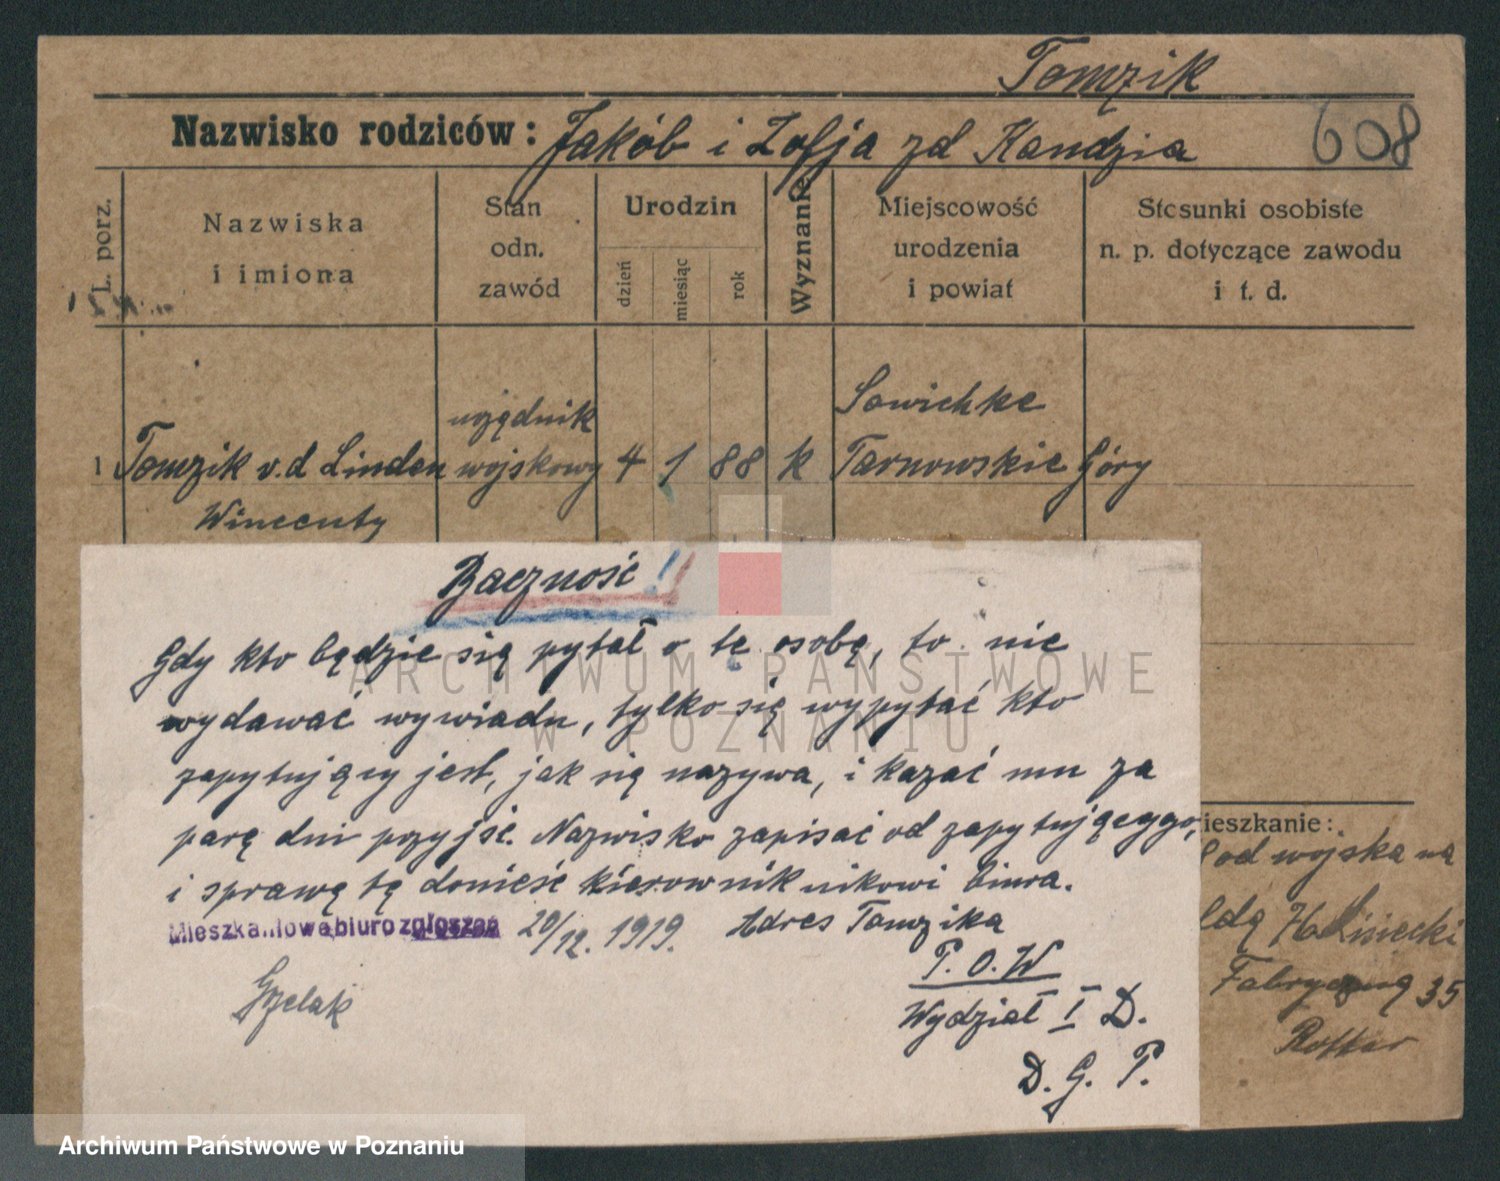 Tomzik
Nazwisko rodziców: Jakób i Zofja zd Kandzia
608
L. porz.
Nazwiska
i imiona
Stan
odn.
zawód
Urodzin
dzień
miesiąc
rok
Wyznanie
Miejscowość
urodzenia
i powiat
Stosunki osobiste
n. p. dotyczące zawodu
i t. d.
1 Tomzik v.d Linden
Wincenty
urzędnik
wojskowy
4 1 88 k
Sowichke
Tarnowskie Góry
Baczność!
Gdy kto będzie się pytał o tę osobę, to nie
wydawać wywiadu, tylko się wypytać kto
zapytujący jest, jak się nazywa, i kazać mu za
parę dni przyjść. Nazwisko zapisać od zapytującego,
i sprawę tę donieść kierownik nikowi biura.
Mieszkaniowe biuro zgłoszeń 20/12. 1919. Adres Tomzika
P. O. W
Wydział I D.
D. G. P.
Grzelak
ieszkanie:
od wojska na
Fabryczną 35
ARCHIWUM PAŃSTWOWE
W POZNANIU
Archiwum Państwowe w Poznaniu